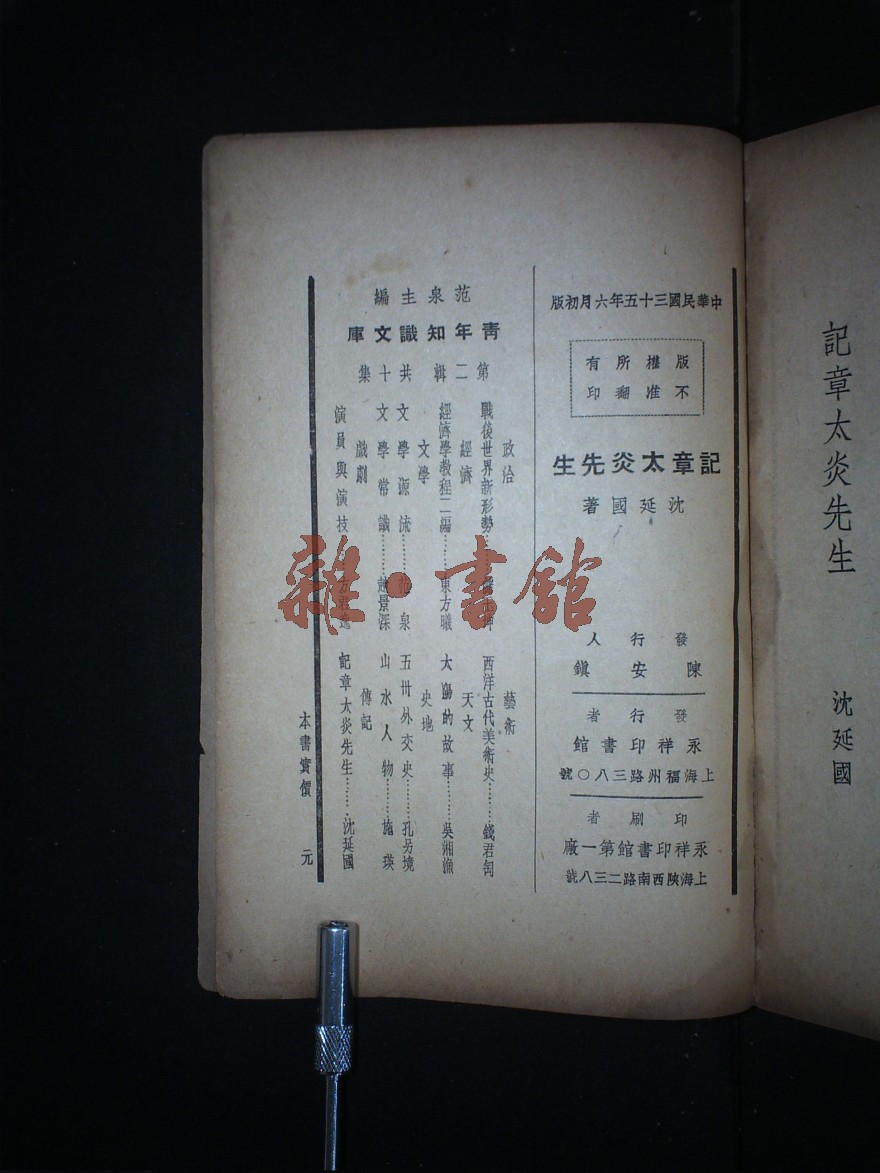 記章太炎先生
沈延國
中華民國三十五年六月初版
版權所有
不准翻印
記章太炎先生
沈延國著
發行人
陳安鎮
發行者
永祥印書館
上海福州路三八〇號
印刷者
永祥印書館第一廠
上海陝西南路二三八號
范泉主編
青年知識文庫
第二輯共十集
政治
戰後世界新形勢
經濟
經濟學教程二編………東方曦
文學
文學源流………泉
文學常識………趙景深
戲劇
演員與演技
藝術
西洋古代美術史………錢君匋
天文
太陽的故事………吳湘漁
史地
五卅外交史………孔另境
山水人物………施瑛
傳記
記章太炎先生………沈延國
本書實價 元
雜·書館